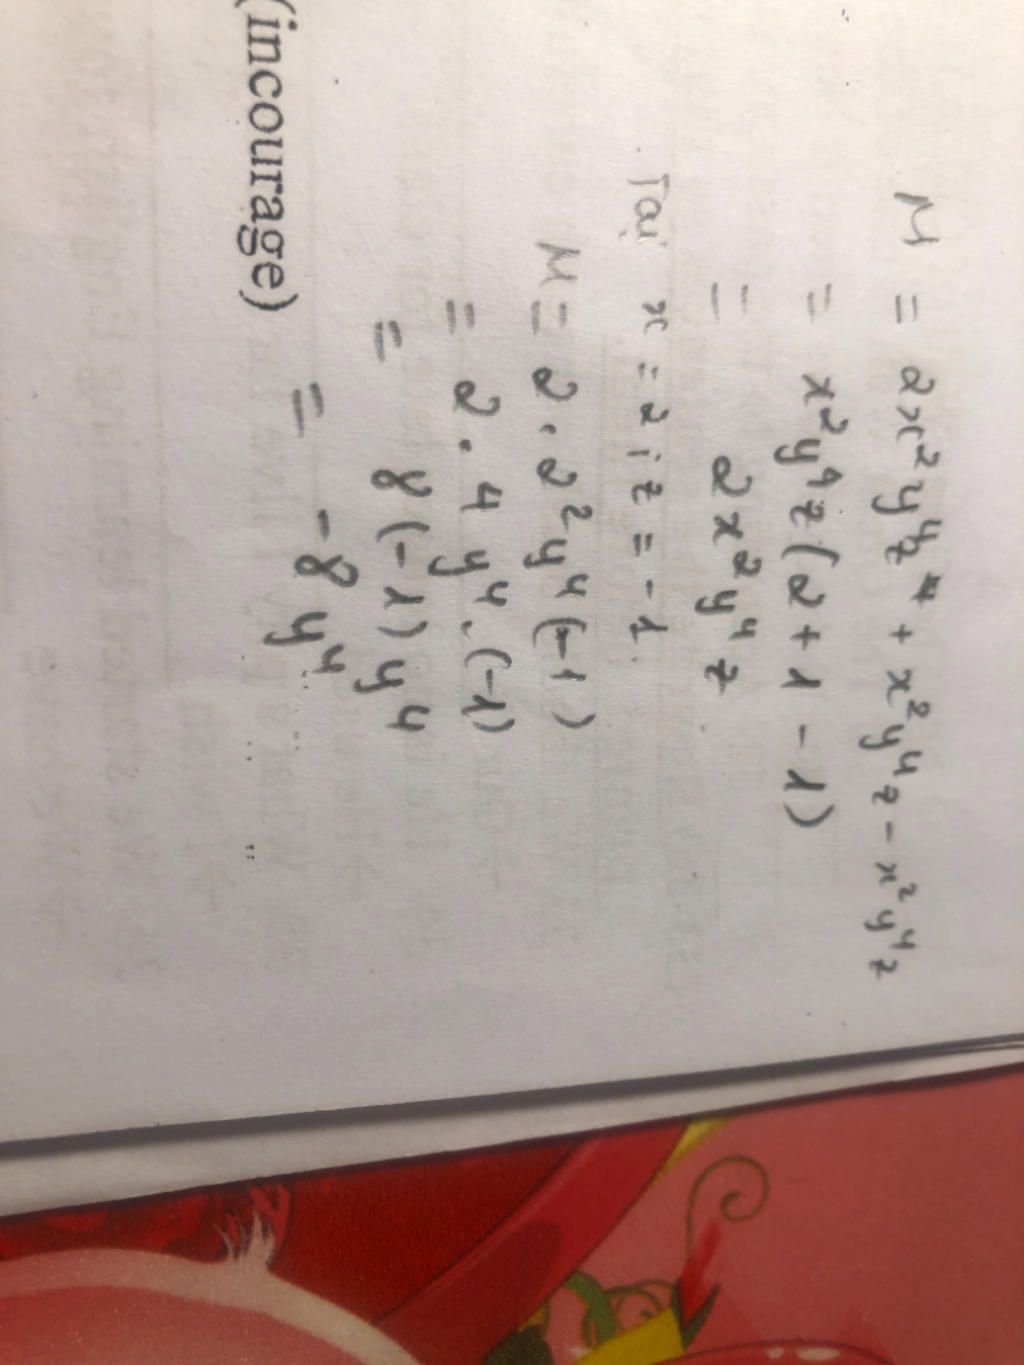 M = 2x²y⁴z + x²y⁴z - x²y⁴z
= x²y⁴z(2 + 1 - 1)
= 2x²y⁴z
Tại x = 2; z = -1.
M = 2.2²y⁴(-1)
= 2.4y⁴.(-1)
= 8(-1)y⁴
= -8y⁴
(incourage)